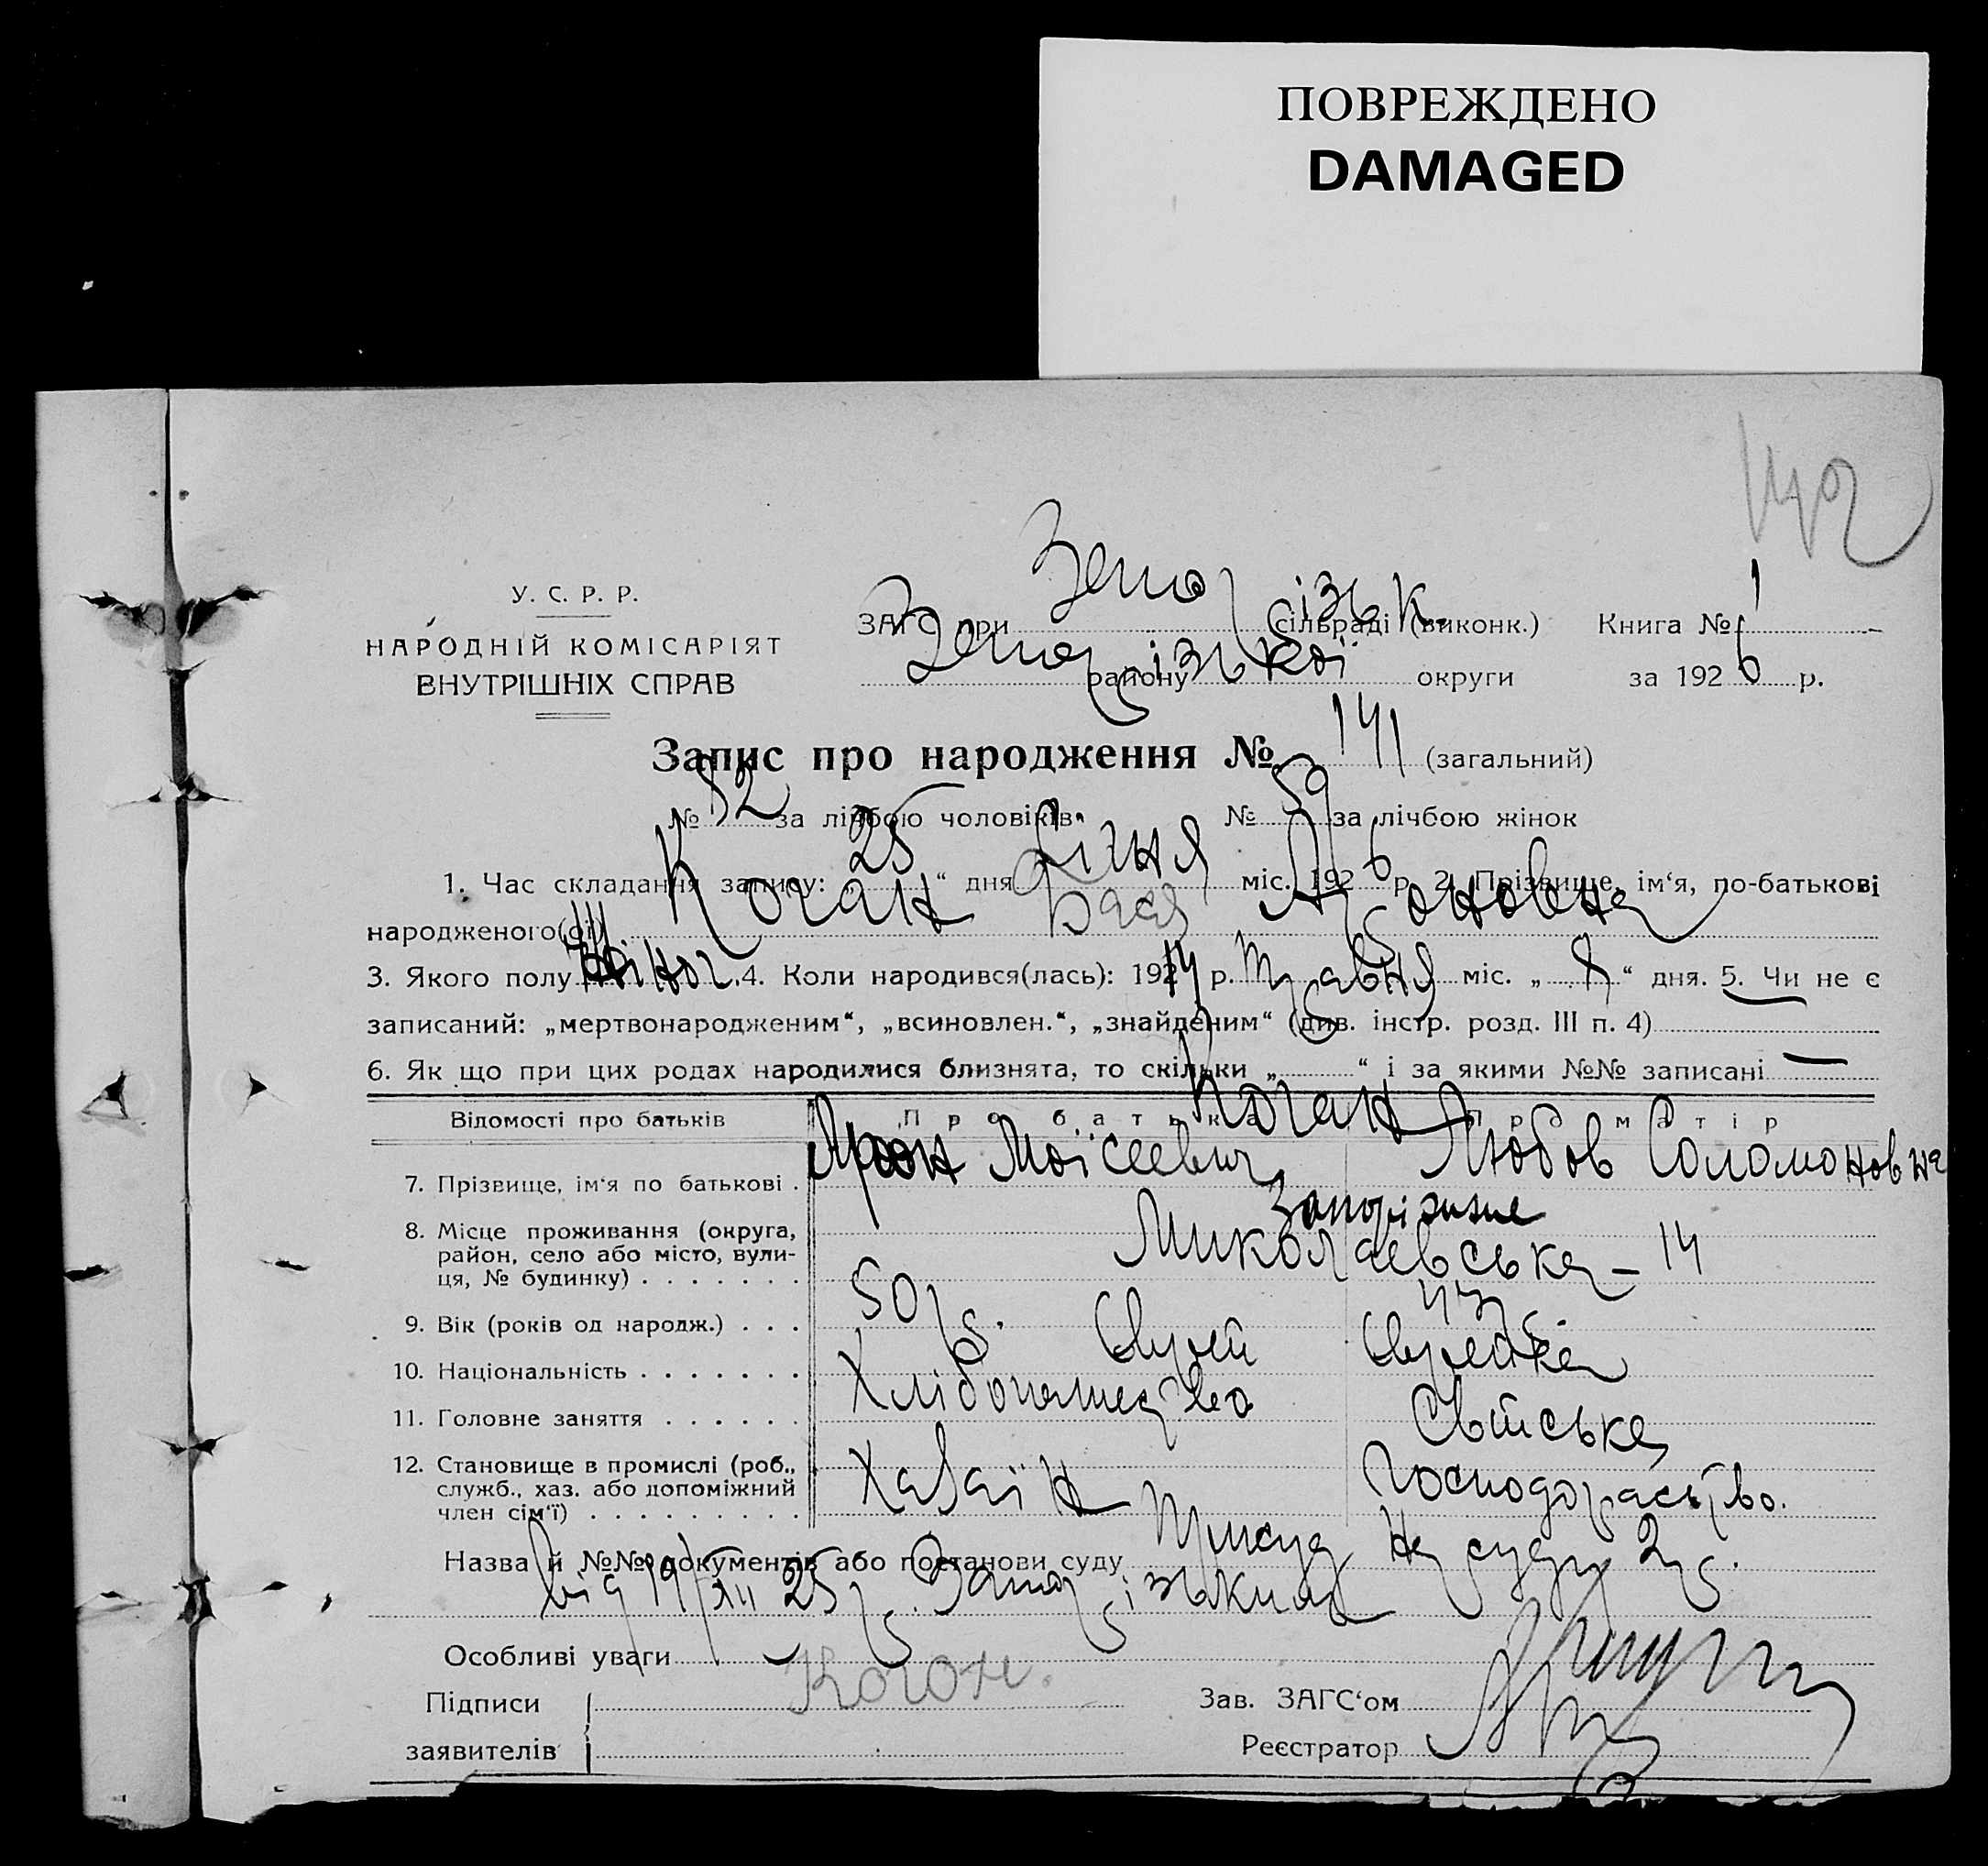 ПОВРЕЖДЕНО
DAMAGED
142
У. С. Р. Р.
НАРОДНІЙ КОМІСАРІЯТ
ВНУТРІШНІХ СПРАВ
ЗАГС при Запорізьк. сільраді (виконк.) Книга № 1
Запорізької району округи за 1926 р.
Запис про народження № 141 (загальний)
№ 82 за лічбою чоловіків № 59 за лічбою жінок
1. Час складання запису: „ 25 “ дня Січня міс. 1926 р. 2. Прізвище, ім‘я, по-батькові
народженого(ої) Коган Бася Ароновна
3. Якого полу Жіноч. 4. Коли народився(лась): 1924 р. Травня міс. „ 8 “ дня. 5. Чи не є
записаний: „мертвонародженим“, „всиновлен.“, „знайденим“ (див. інстр. розд. III п. 4) —
6. Як що при цих родах народилися близнята, то скільки „ “ і за якими №№ записані —
Відомості про батьків Про батька Про матір
Коган
7. Прізвище, ім‘я по батькові . Арон Моісеевич Любов Соломоновна
8. Місце проживання (округа, район, село або місто, вули-ця, № будинку) . . . . . . . Запоріжжe Миколаевська – 14
9. Вік (років од народж.) . . . 50 р. 43 р.
10. Національність . . . . . . . Єврей Єврейка
11. Головне заняття . . . . . . Хлібопашество Світське
12. Становище в промислі (роб., служб., хаз. або допоміжний член сім‘ї) . . . . . . . . . Хазаїн Господарство.
Назва й №№ документів або постанови суду Присуд На суду 2 р.
від 19/XII 25 р. Запорізьким
Особливі уваги
Підписи Когон. Зав. ЗАГС‘ом
заявителів Реєстратор